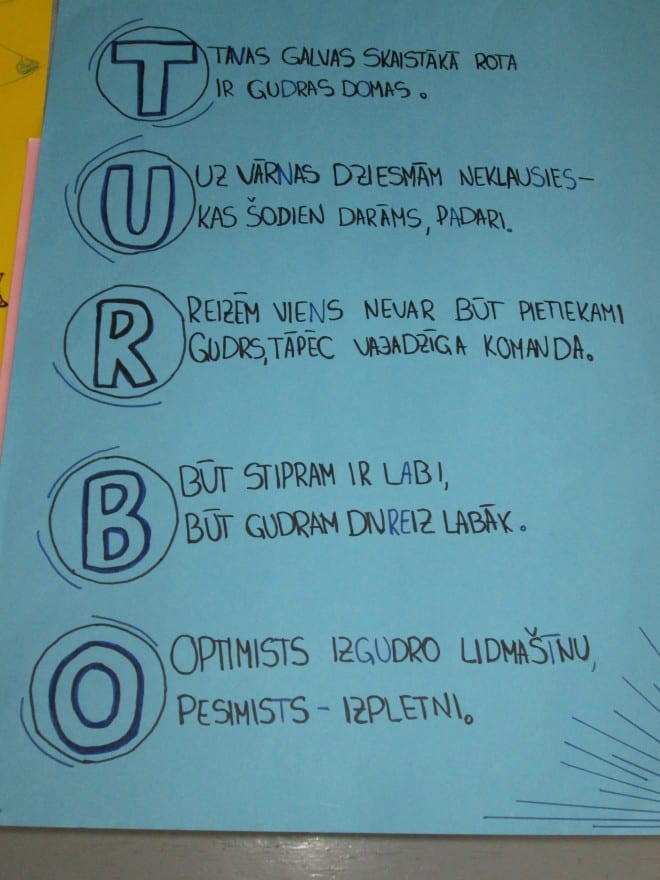 T TAVAS GALVAS SKAISTĀKĀ ROTA
IR GUDRAS DOMAS.
U UZ VĀRNAS DZIESMĀM NEKLAUSIES-
KAS ŠODIEN DARĀMS, PADARI.
R REIZĒM VIENS NEVAR BŪT PIETIEKAMI
GUDRS, TĀPĒC VAJADZĪGA KOMANDA.
B BŪT STIPRAM IR LABI,
BŪT GUDRAM DIVREIZ LABĀK.
O OPTIMISTS IZGUDRO LIDMAŠĪNU,
PESIMISTS - IZPLETNI.